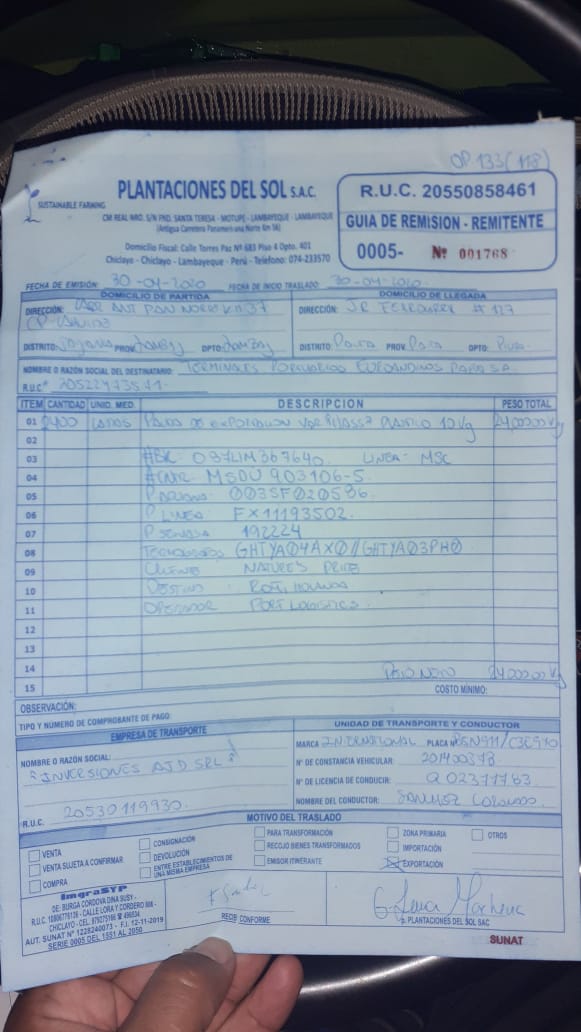 OP 133(118)
SUSTAINABLE FARMING
PLANTACIONES DEL SOL S.A.C.
CM REAL NRO. S/N FND. SANTA TERESA - MOTUPE - LAMBAYEQUE - LAMBAYEQUE
(Antigua Carretera Panamericana Norte Km 56)
Domicilio Fiscal: Calle Torres Paz Nº 683 Piso 4 Dpto. 401
Chiclayo - Chiclayo - Lambayeque - Perú - Teléfono: 074-233570
R.U.C. 20550858461
GUIA DE REMISION - REMITENTE
0005- Nº 001768
FECHA DE EMISIÓN: 30-04-2020 FECHA DE INICIO TRASLADO: 30-04-2020
DOMICILIO DE PARTIDA
DIRECCIÓN: PAN NORTE KM 37
DISTRITO: PROV. DPTO:
DOMICILIO DE LLEGADA
DIRECCIÓN: JR FERROCARRIL # 127
DISTRITO: PAITA PROV. PAITA DPTO: PIURA
NOMBRE O RAZÓN SOCIAL DEL DESTINATARIO: TERMINALES PORTUARIOS EUROANDINOS PAITA SA.
R.U.C. 20522473571
ITEM CANTIDAD UNID. MED. DESCRIPCION PESO TOTAL
01 2400 DE EXPORTACION VAR PLASTICO 10 Kg 24,000.00 Kg
02
03 #BK: 037LIM367640. LINEA: MSC
04 #CNTR: MSDU 903106-5.
05 P ADUANA: 003SF020586
06 P LINEA: FX11193502.
07 P SENASA: 192224
08 TERMOGRAFOS GHTYA04AX0//GHTYA03PH0
09 CLIENTE NATURE'S PRIDE
10 DESTINO: ROTT. HOLANDA
11 OPERADOR PORT LOGISTICS.
12
13
14 PESO NETO 24000.00 Kg
15 COSTO MÍNIMO:
OBSERVACIÓN:
TIPO Y NÚMERO DE COMPROBANTE DE PAGO:
EMPRESA DE TRANSPORTE
NOMBRE O RAZÓN SOCIAL:
"INVERSIONES AJD SRL"
R.U.C. 20530119930
UNIDAD DE TRANSPORTE Y CONDUCTOR
MARCA INTERNATIONAL PLACA Nº
Nº DE CONSTANCIA VEHICULAR:
Nº DE LICENCIA DE CONDUCIR: Q 02371763
NOMBRE DEL CONDUCTOR: SANCHEZ
MOTIVO DEL TRASLADO
VENTA
VENTA SUJETA A CONFIRMAR
COMPRA
CONSIGNACIÓN
DEVOLUCIÓN
ENTRE ESTABLECIMIENTOS DE UNA MISMA EMPRESA
PARA TRANSFORMACIÓN
RECOJO BIENES TRANSFORMADOS
EMISOR ITINERANTE
ZONA PRIMARIA
IMPORTACIÓN
EXPORTACIÓN
OTROS
ImgraSYP
DE: BURGA CORDOVA DINA SUSY -
R.U.C. 10806776126 - CALLE LORA Y CORDERO 808 -
CHICLAYO - CEL. 979275166
AUT. SUNAT Nº 1228240073 - F.I. 12-11-2019
SERIE 0005 DEL 1551 AL 2050
RECIBI CONFORME
p. PLANTACIONES DEL SOL SAC
SUNAT